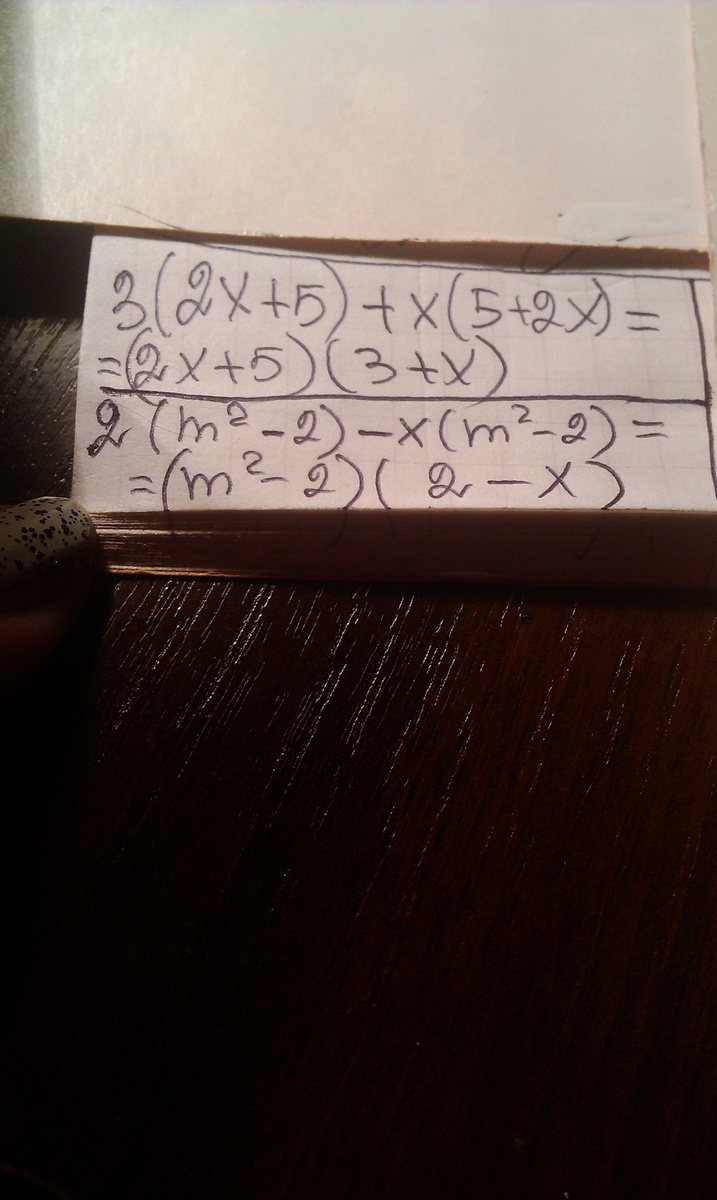 3(2x+5)+x(5+2x)=
=(2x+5)(3+x)
2(m²-2)-x(m²-2)=
=(m²-2)(2-x)